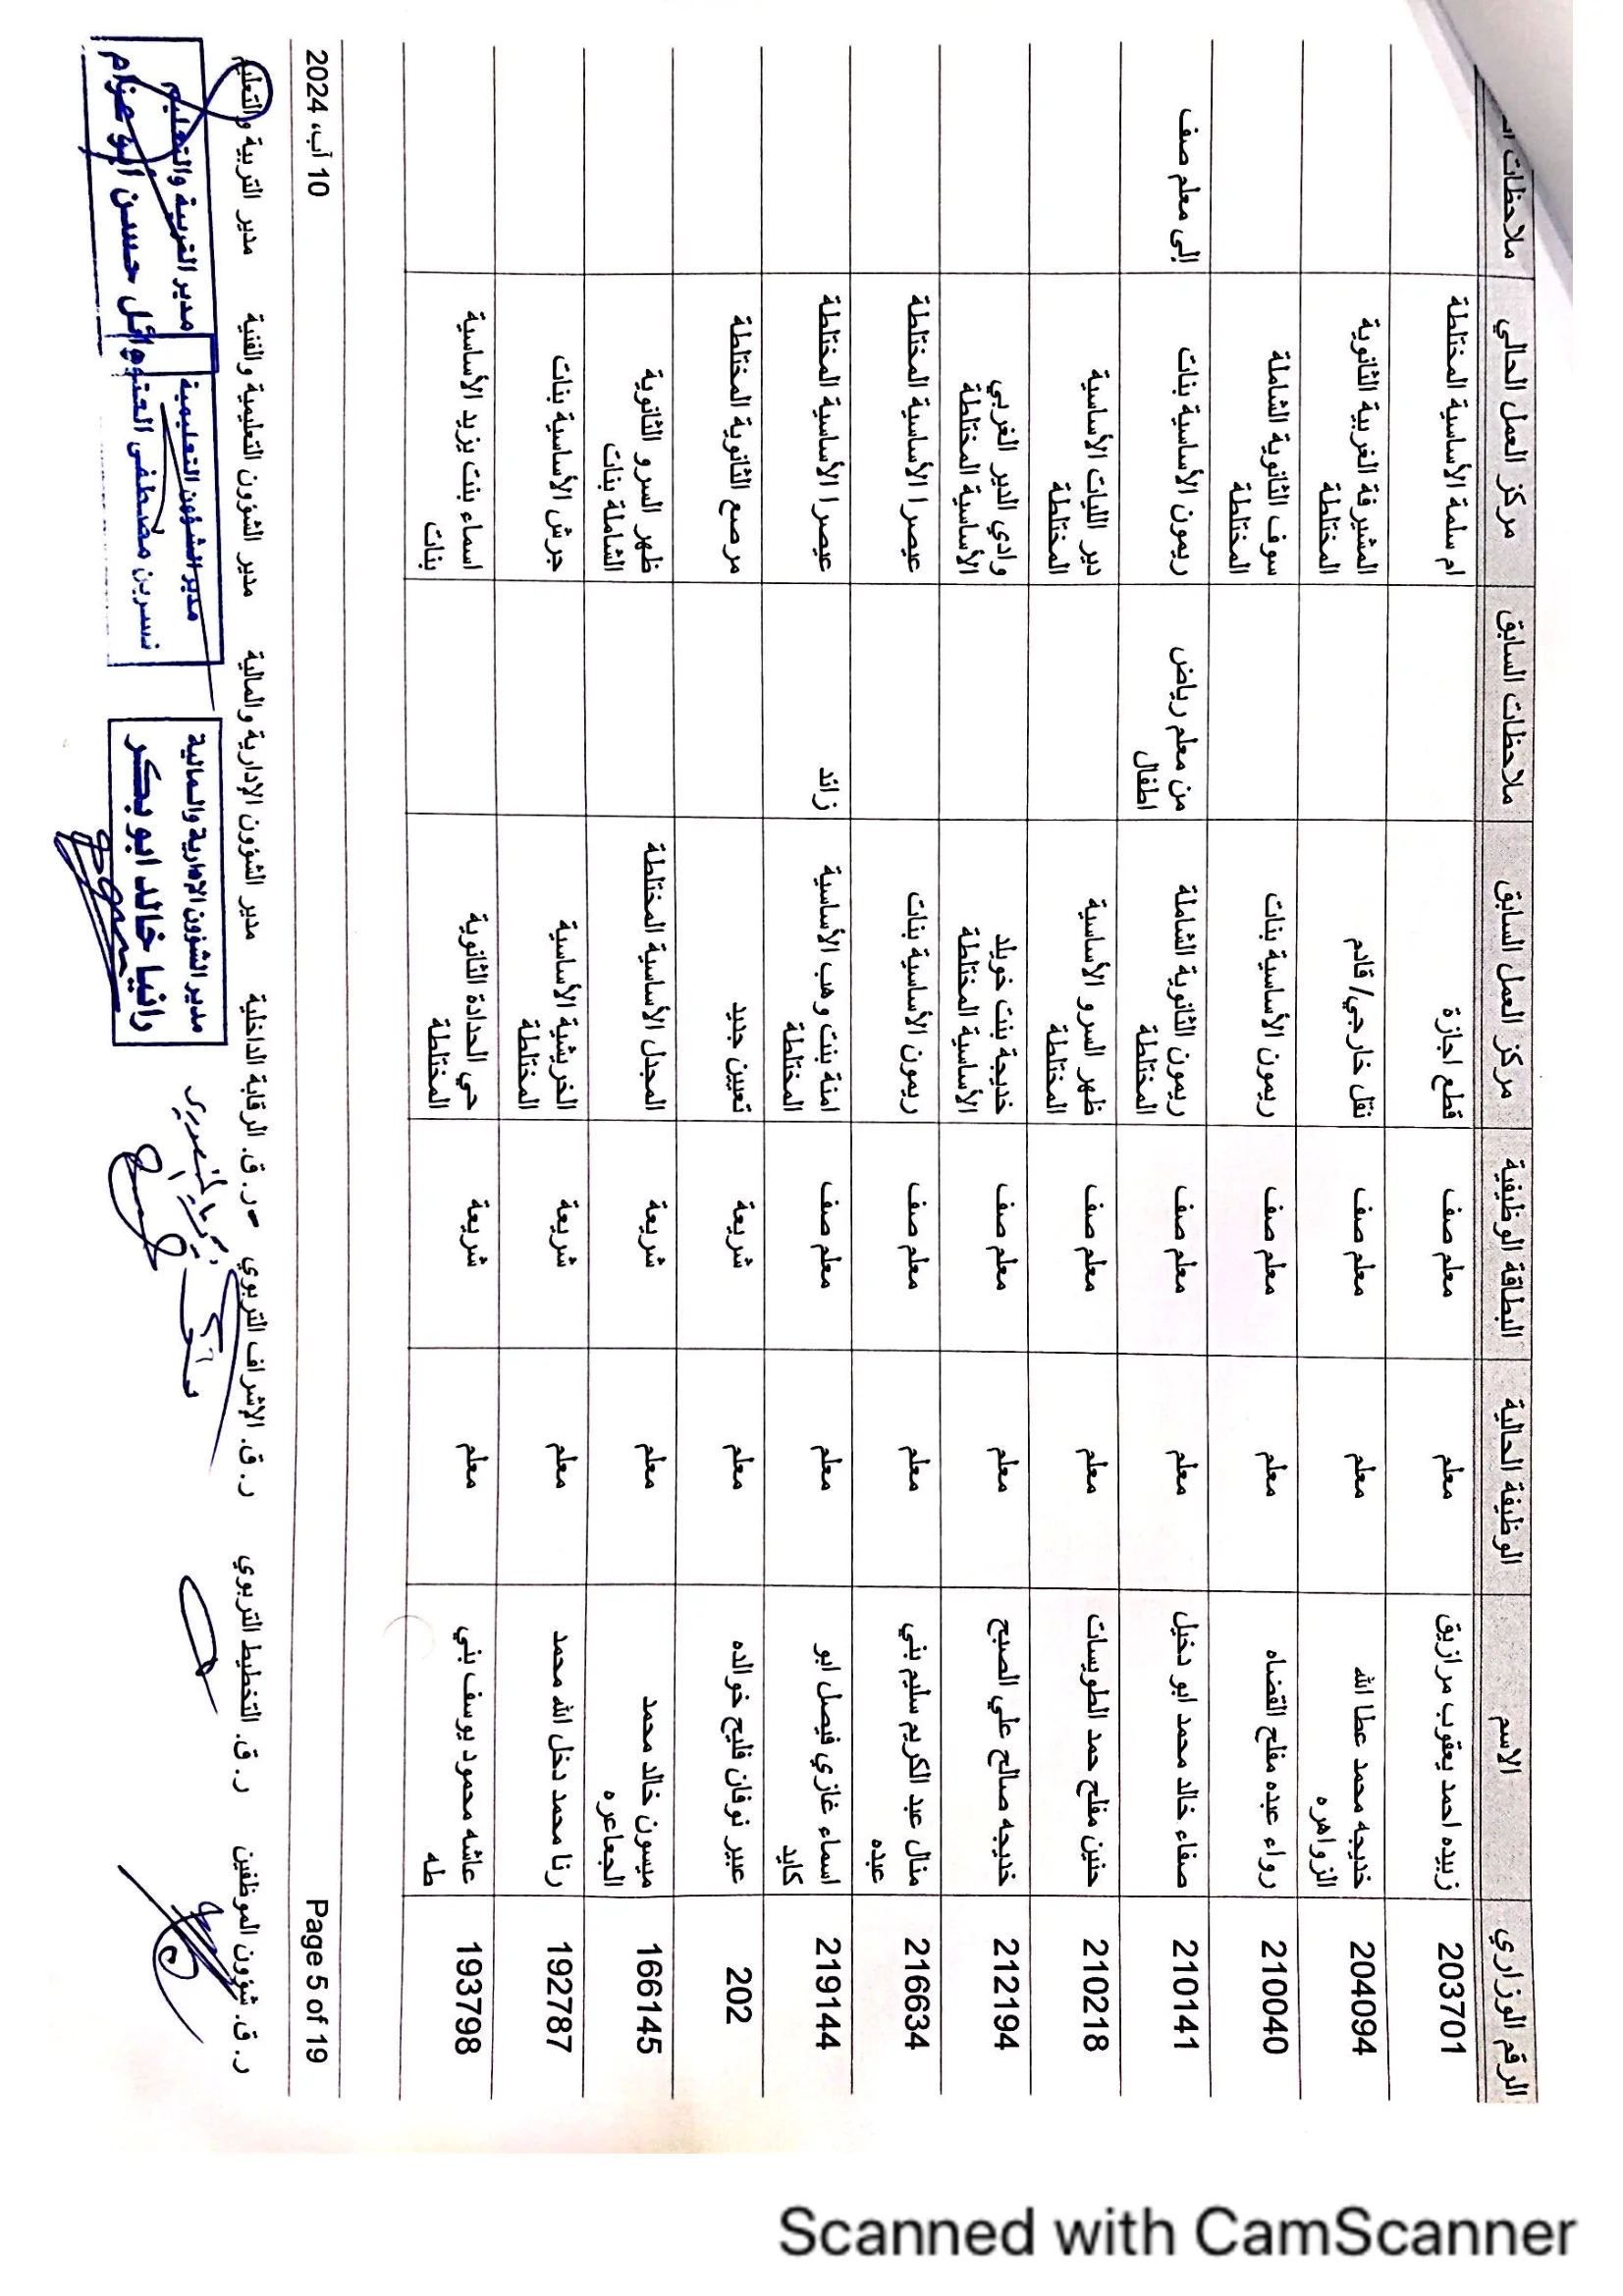 الرقم الوزاري الاسم الوظيفة الحالية البطاقة الوظيفية مركز العمل السابق ملاحظات السابق مركز العمل الحالي ملاحظات
203701 زبيده احمد يعقوب مرازيق معلم معلم صف قطع اجازة ام سلمة الأساسية المختلطة
204094 خديجه محمد عطا الله معلم معلم صف نقل خارجي/ قادم المشيرفة الغربية الثانوية
الزواهره المختلطة
210040 رواء عبده مفلح القضاه معلم معلم صف ريمون الأساسية بنات سوف الثانوية الشاملة
المختلطة
210141 صفاء خالد محمد ابو دخيل معلم معلم صف ريمون الثانوية الشاملة من معلم رياض ريمون الأساسية بنات إلى معلم صف
المختلطة اطفال
210218 حنين مفلح حمد الطويسات معلم معلم صف ظهر السرو الأساسية دير الليات الأساسية
المختلطة المختلطة
212194 خديجه صالح علي الصبح معلم معلم صف خديجة بنت خويلد وادي الدير الغربي
الأساسية المختلطة الأساسية المختلطة
216634 منال عبد الكريم سليم بني معلم معلم صف ريمون الأساسية بنات عيصرا الأساسية المختلطة
عبده
219144 اسماء غازي فيصل ابو معلم معلم صف امنة بنت وهب الأساسية زائد عيصرا الأساسية المختلطة
كايد المختلطة
202 عبير نوفان فليح خوالده معلم شريعة تعيين جديد مرصع الثانوية المختلطة
166145 ميسون خالد محمد معلم شريعة المجدل الأساسية المختلطة ظهر السرو الثانوية
الجعاعره الشاملة بنات
192787 رنا محمد دخل الله محمد معلم شريعة الخريشية الأساسية جرش الأساسية بنات
المختلطة
193798 عاشه محمود يوسف بني معلم شريعة حي الحدادة الثانوية اسماء بنت يزيد الأساسية
طه المختلطة بنات
Page 5 of 19 10 آب، 2024
ر. ق. شؤون الموظفين ر. ق. التخطيط التربوي ر. ق. الإشراف التربوي ر. ق. الرقابة الداخلية مدير الشؤون الإدارية والمالية مدير الشؤون التعليمية والفنية مدير التربية والتعليم
مدير الشؤون الإدارية والمالية
رانيا خالد ابو بكر
مدير الشؤون التعليمية
نسرين مصطفى العتوم
مدير التربية والتعليم
وائل حسن ابو عزام
Scanned with CamScanner